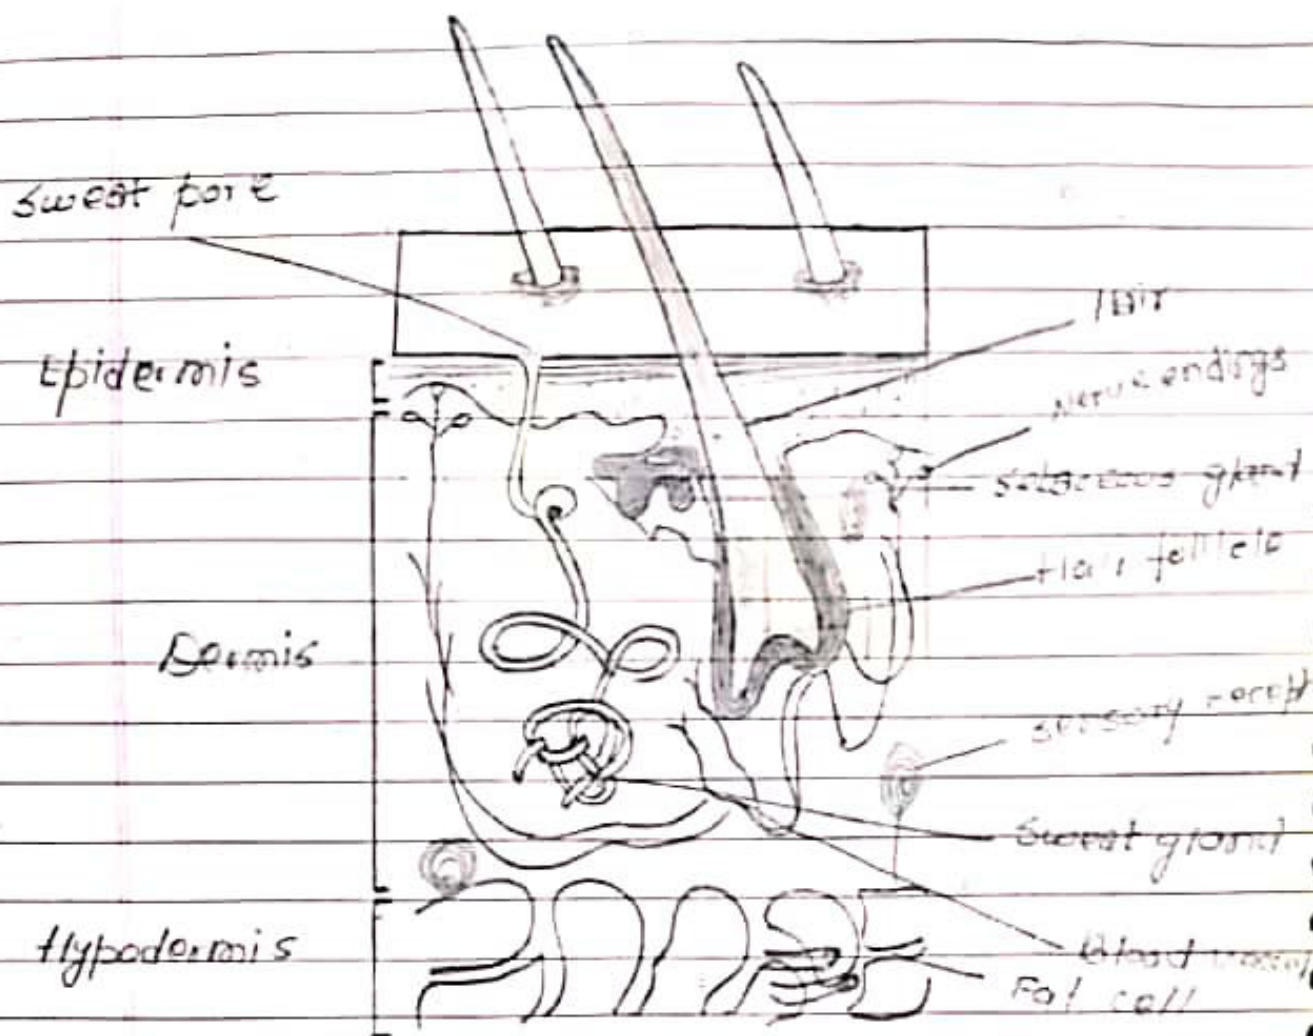 Sweat pore
Epidermis
Dermis
Hypodermis
Hair
Nerve endings
Sebaceous gland
Hair follicle
sensory recept
Sweat gland
Blood vessel
Fat cell